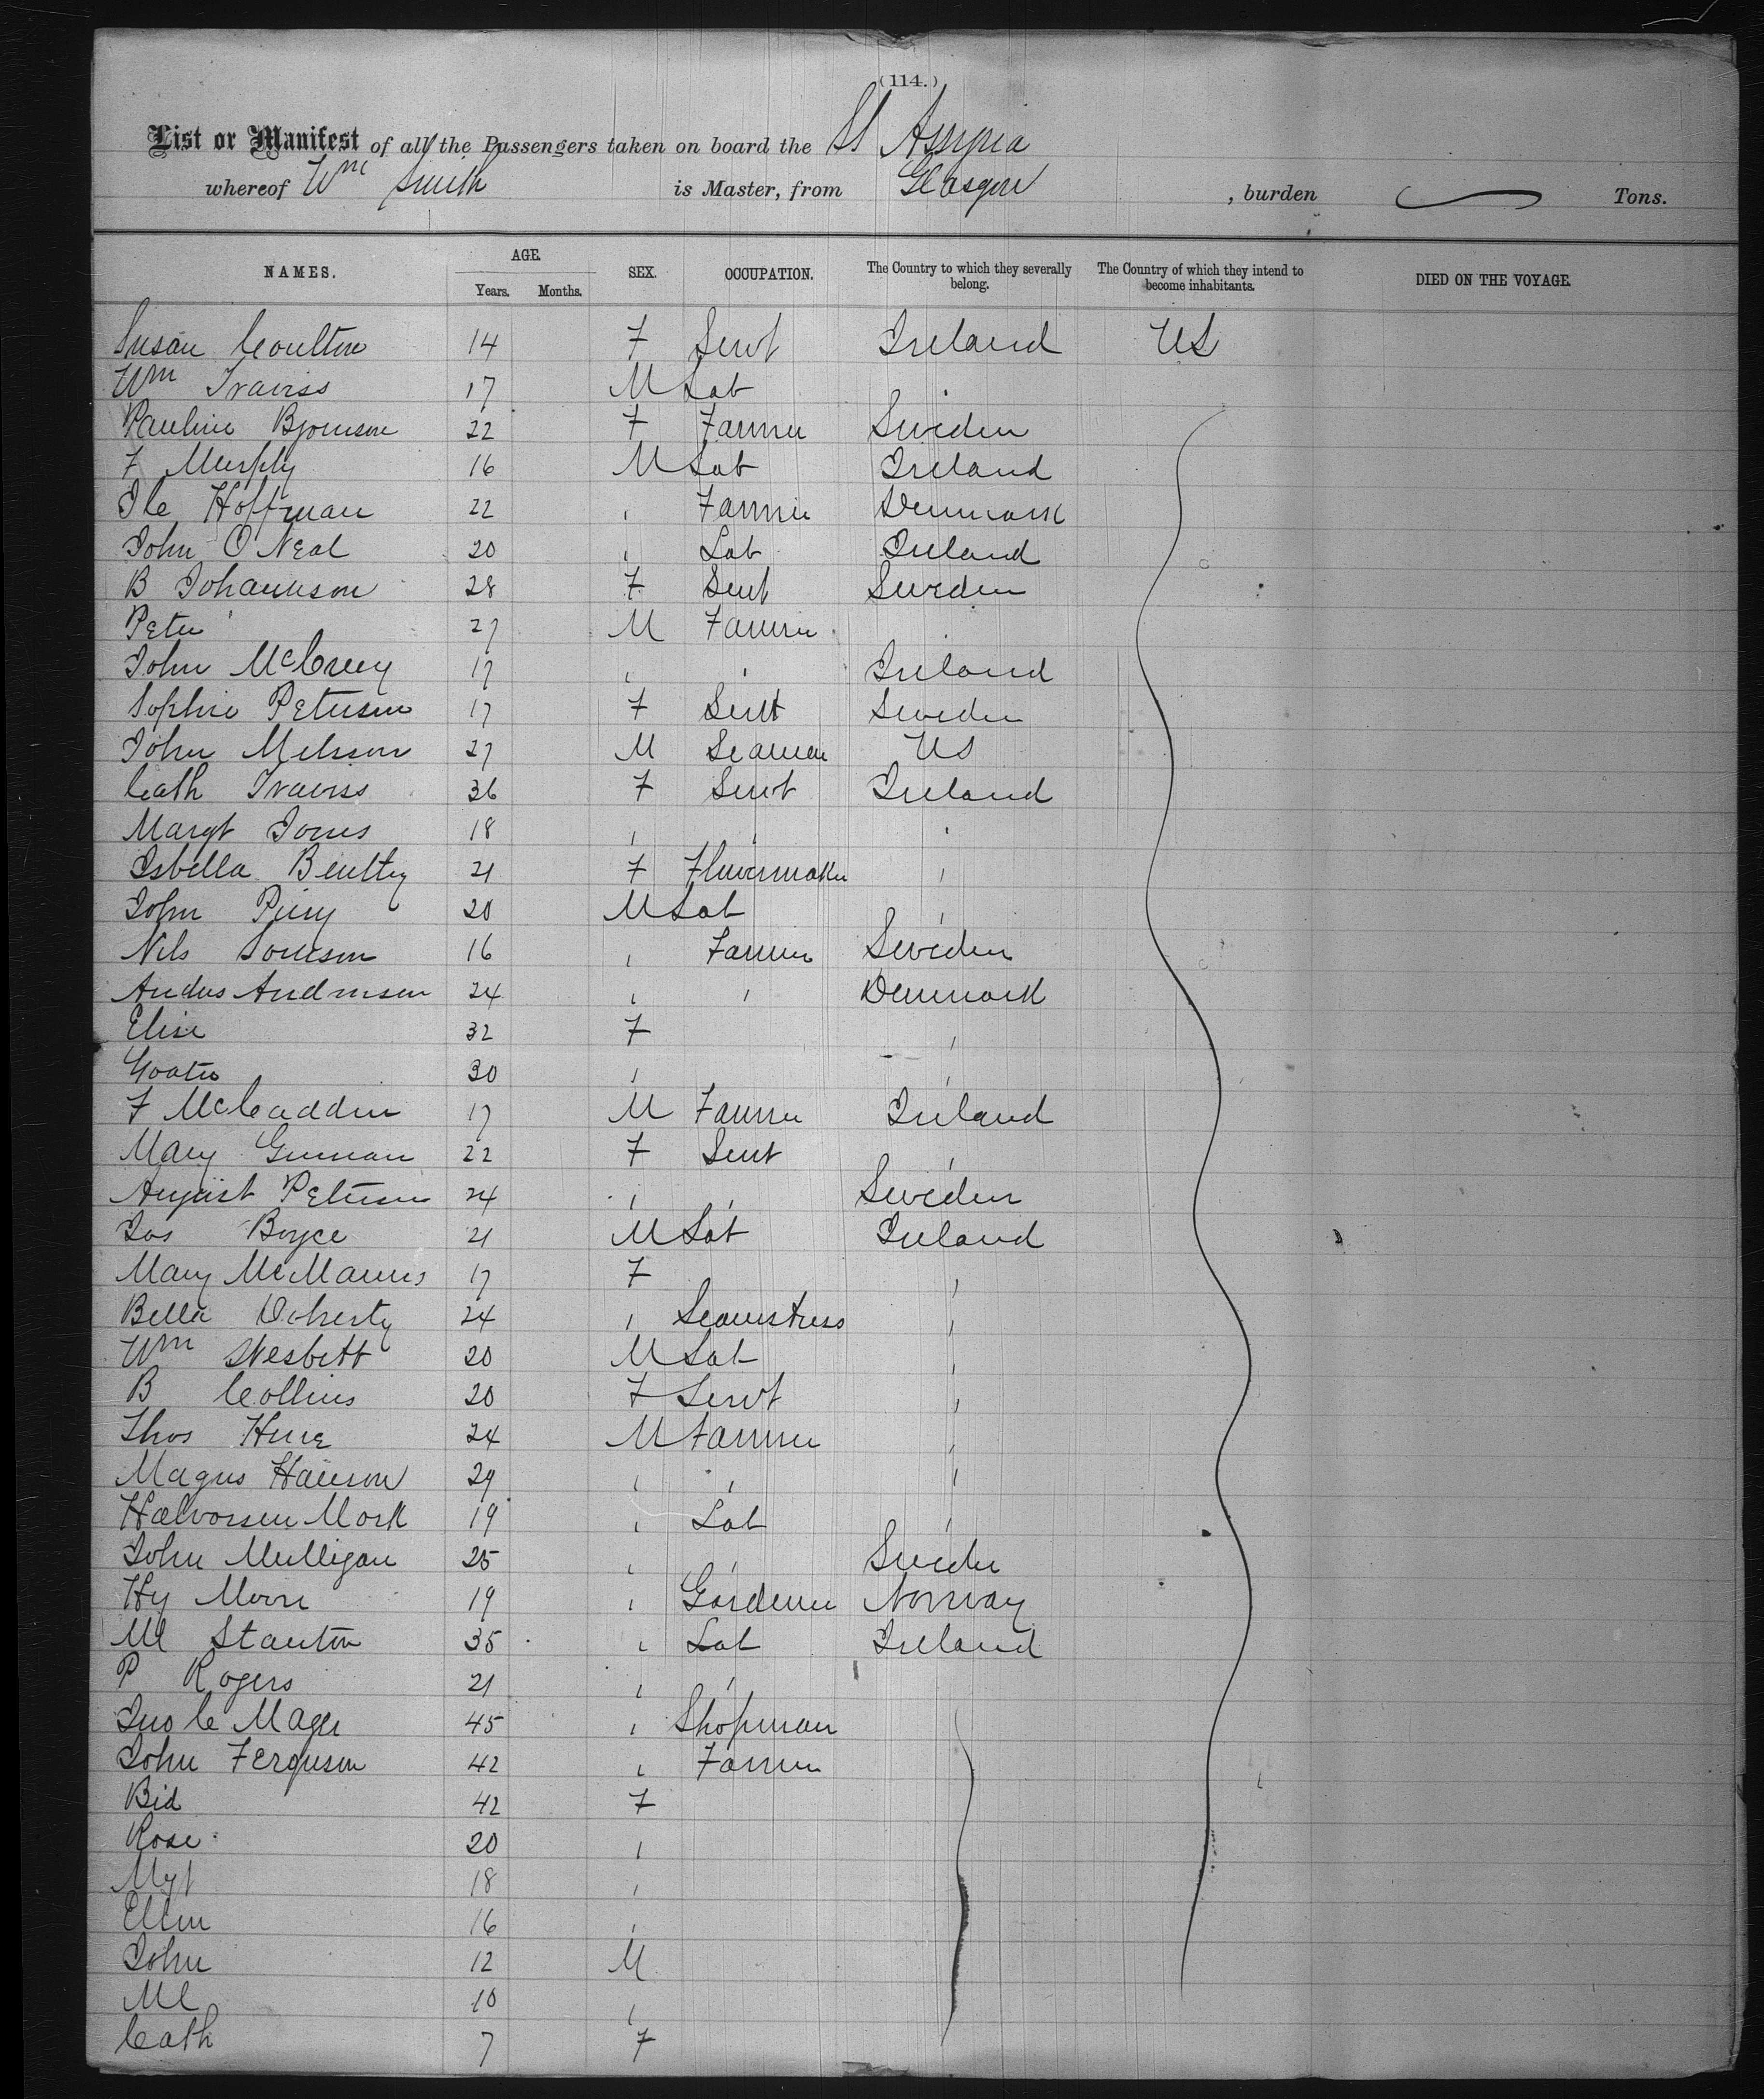 (114.)
List or Manifest of all the Passengers taken on board the SS Assyria
whereof Wm Smith is Master, from Glasgow , burden Tons.
NAMES. AGE. SEX. OCCUPATION. The Country to which they severally belong. The Country of which they intend to become inhabitants. DIED ON THE VOYAGE.
Years. Months.
Susan Coulton 14 F Servt Ireland US
Wm Travirs 17 M Lab
Pauline Bjornson 22 F Farmer Sweden
F Murphy 16 M Lab Ireland
Ile Hoffman 22 , Farmer Denmark
John O'Neal 20 , Lab Ireland
B Johannson 28 F Sevt Sweden
Peter 27 M Farmer
John McCreey 17 , , Ireland
Sophie Peterson 17 F Servt Sweden
John Melsson 27 M Seaman US
Cath Travirs 36 F Servt Ireland
Margt Jones 18 , , ,
Isbella Bentley 21 F Flowermaker ,
John Piery 20 M Lab ,
Nils Sonesson 16 , Farmer Sweden
Andus Andersen 24 , , Denmark
Elise 32 F ,
30 , ,
F McCadden 17 M Farmer Ireland
Mary Gunnan 22 F Sevt ,
August Peterson 24 , , Sweden
Jas Boyce 21 M Lab Ireland
Mary McManus 17 F ,
Bella Doherty 24 , Seamstress ,
Wm Nesbitt 20 M Lab ,
B Collins 20 F Servt ,
Thos 24 M Farmer ,
Magus Hanson 29 , , ,
Halvorsen Mork 19 , Lab ,
John Mulligan 25 , , Sweden
Hy Moore 19 , Gardener Norway
Ml Stanton 35 , Lab Ireland
P Rogers 21 , ,
Jno C Mager 45 , Shopman
John Ferguson 42 , Farmer
Bid 42 F
Rose 20 ,
Mgt 18 ,
Ellen 16 ,
John 12 M
Ml 10 ,
Cath 7 F